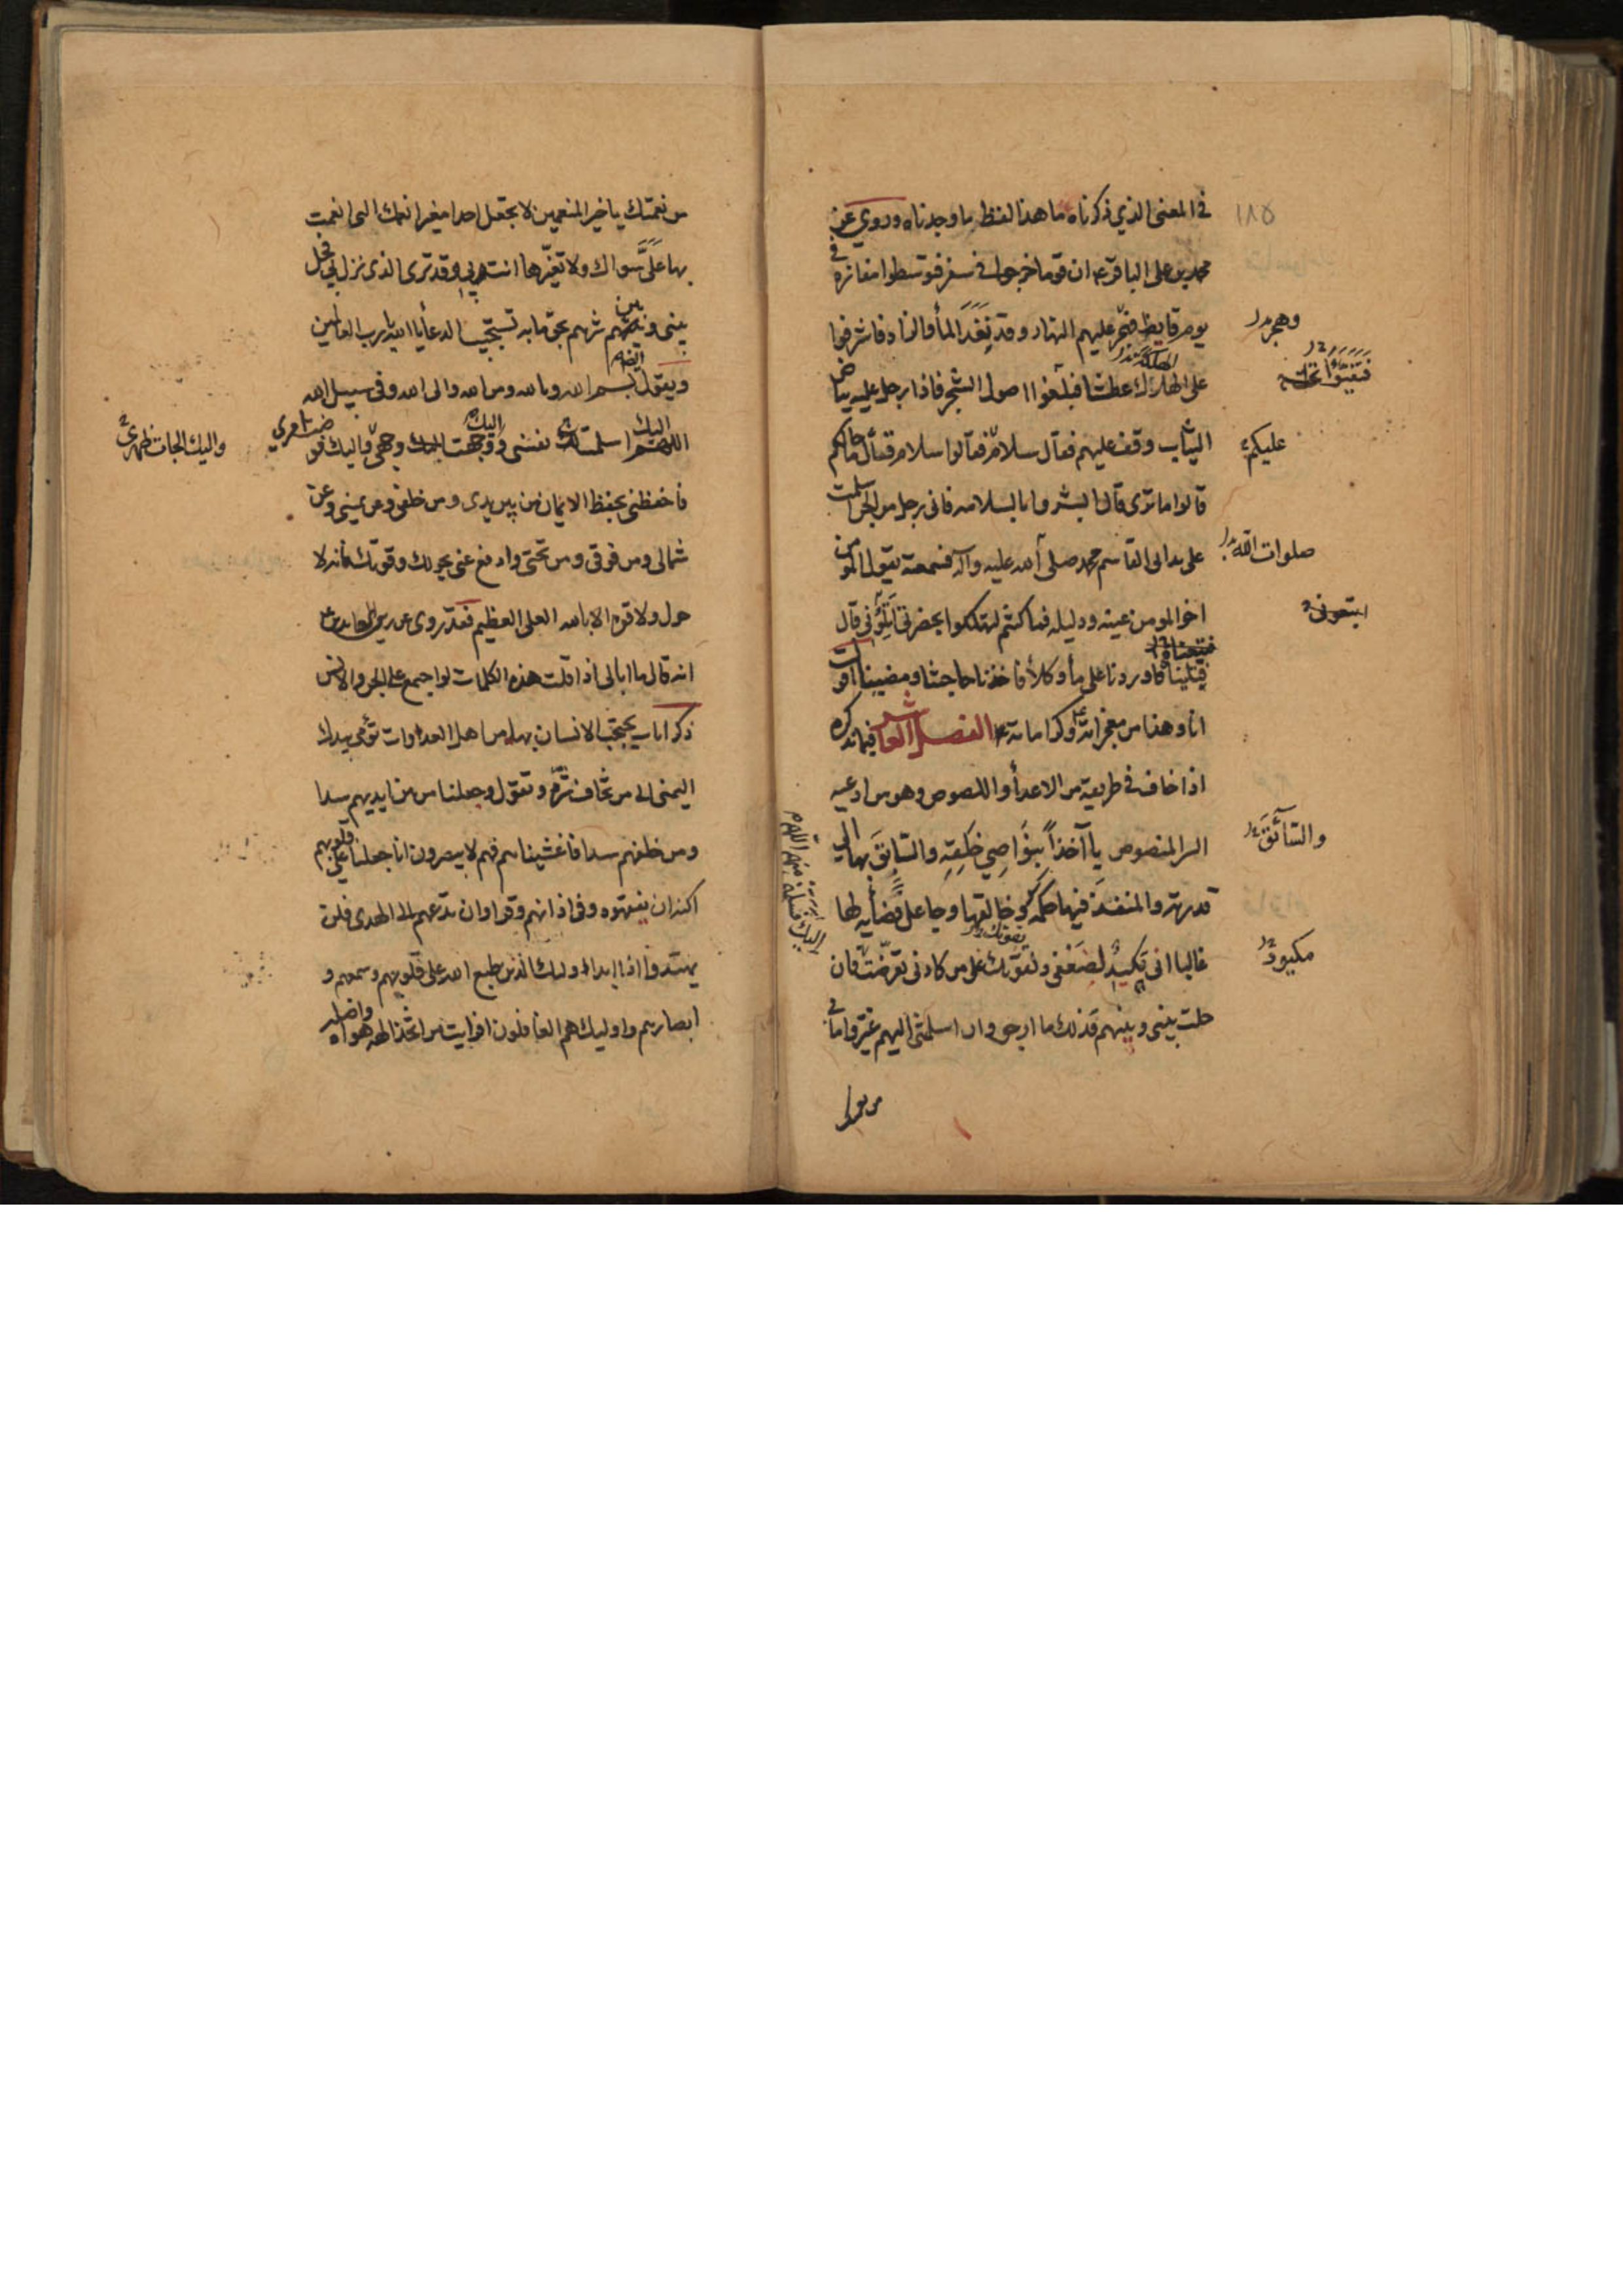 ١٨٥
في المعنى الذي ذكرناه ما هذا لفظ ما وجدناه وروي عن
محمد بن علي الباقر ع ان قوما خرجوا في سفر فتوسطوا مفازة في
يوم قايظ فحر عليهم النهار وقد نفد المأ والزاد فاشرفوا
وهجم
على الهلاك عطشا فبلغوا اصول الشجر فاذا رجل عليه بياض
الثياب وقف عليهم فقال سلام فقالوا سلام فقال ما حالكم
عليكم
قالوا ما ترى قال ابشروا بالسلامه فاني رجل من الجن اسلمت
على يد ابي القاسم محمد صلى الله عليه وآله فسمعته يقول المؤمن
صلوات الله
اخو المومن عينه ودليله فما كنتم لتهلكوا بحضرتي اتلوني قال
اتبعوني
فتلينا فاوردنا على مأ وكلأ فاخذنا حاجتنا ومضينا اقول
فتبعناه
انا وهذا من معجزاته وكراماته ع الفصل العاشر فيما نذكره
اذا خاف في طريقه من الاعدأ واللصوص وهو من ادعيه
السر المنصوص يا آخذا بنواصي خلقه والسابق بها الى
والسائق
قدرته والمنفذ فيها حكمه وخالقها وجاعل قضأيه لها
غالبا اني مكيد لضعفي ولقوتك على من كادني تعرضت فان
مكيود
حلت بيني وبينهم فذلك ما ارجو وان اسلمتني اليهم غيروا ما بي
من نعمتك يا خير المنعمين لا تجعل احدا مغيرا نعمك التي انعمت
بها علي سواك ولا تغيرها انت ربي وقد ترى الذي نزل بي فحل
بيني وبين شرهم بحق ما به تستجيب الدعأ يا الله يا رب العالمين
ويقول ايضا بسم الله وبالله ومن الله والى الله وفي سبيل الله
اللهم اليك اسلمت نفسي ووجهت اليك وجهي واليك فوضت امري
واليك الجات ظهري
فاحفظني بحفظ الايمان من بين يدي ومن خلفي وعن يميني وعن
شمالي ومن فوقي ومن تحتي وادفع عني بحولك وقوتك فانه لا
حول ولا قوه الا بالله العلي العظيم فقد روى عن زين العابدين ع
انه قال ما ابالي اذا قلت هذه الكلمات لو اجتمع علي الجن والانس
ذكر ايات يحتجب الانسان بها من اهل العداوات تؤمي بيدك
اليمنى الى من تخاف شره وتقول وجعلنا من بين ايديهم سدا
ومن خلفهم سدا فاغشيناهم فهم لا يبصرون انا جعلنا على قلوبهم
اكنه ان يفقهوه وفي اذانهم وقرا وان تدعهم الى الهدى فلن
يهتدوا اذا ابدا اوليك الذين طبع الله على قلوبهم وسمعهم و
ابصارهم واوليك هم الغافلون افرايت من اتخذ الهه هواه واضله